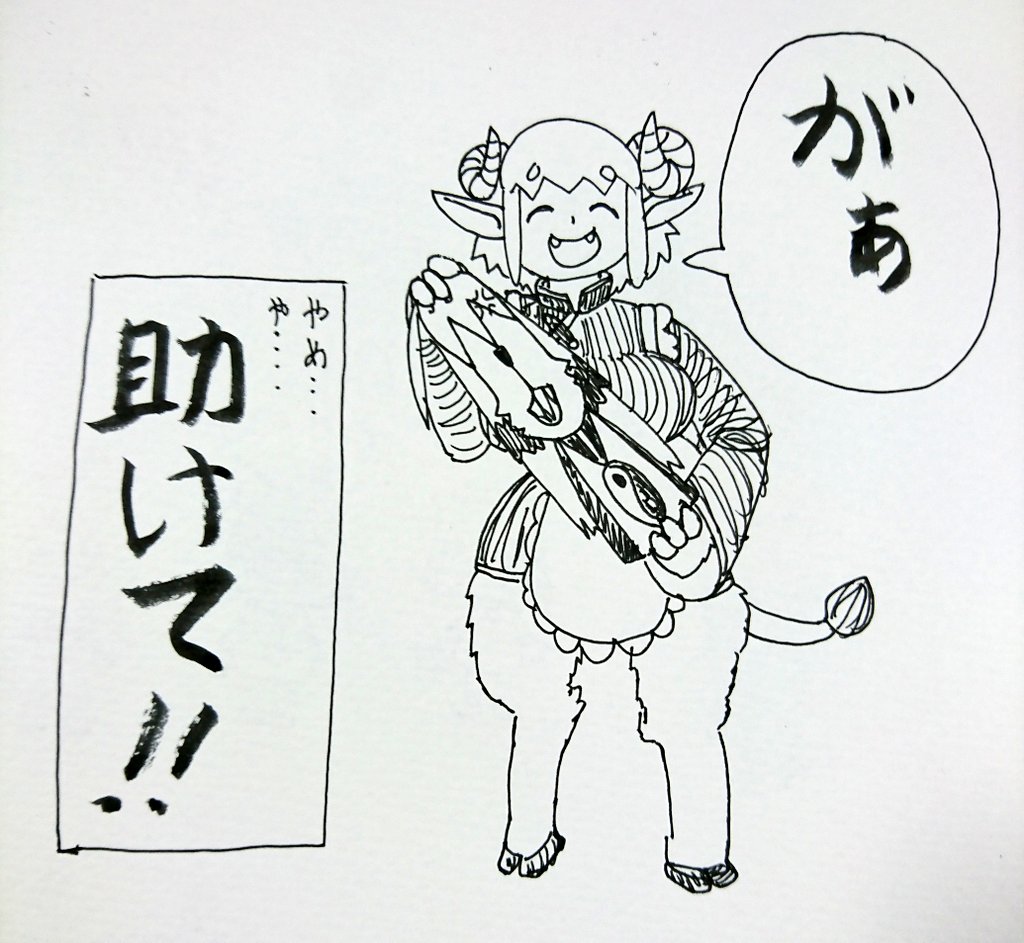 がぁ
やめ...
や....
助けて!!